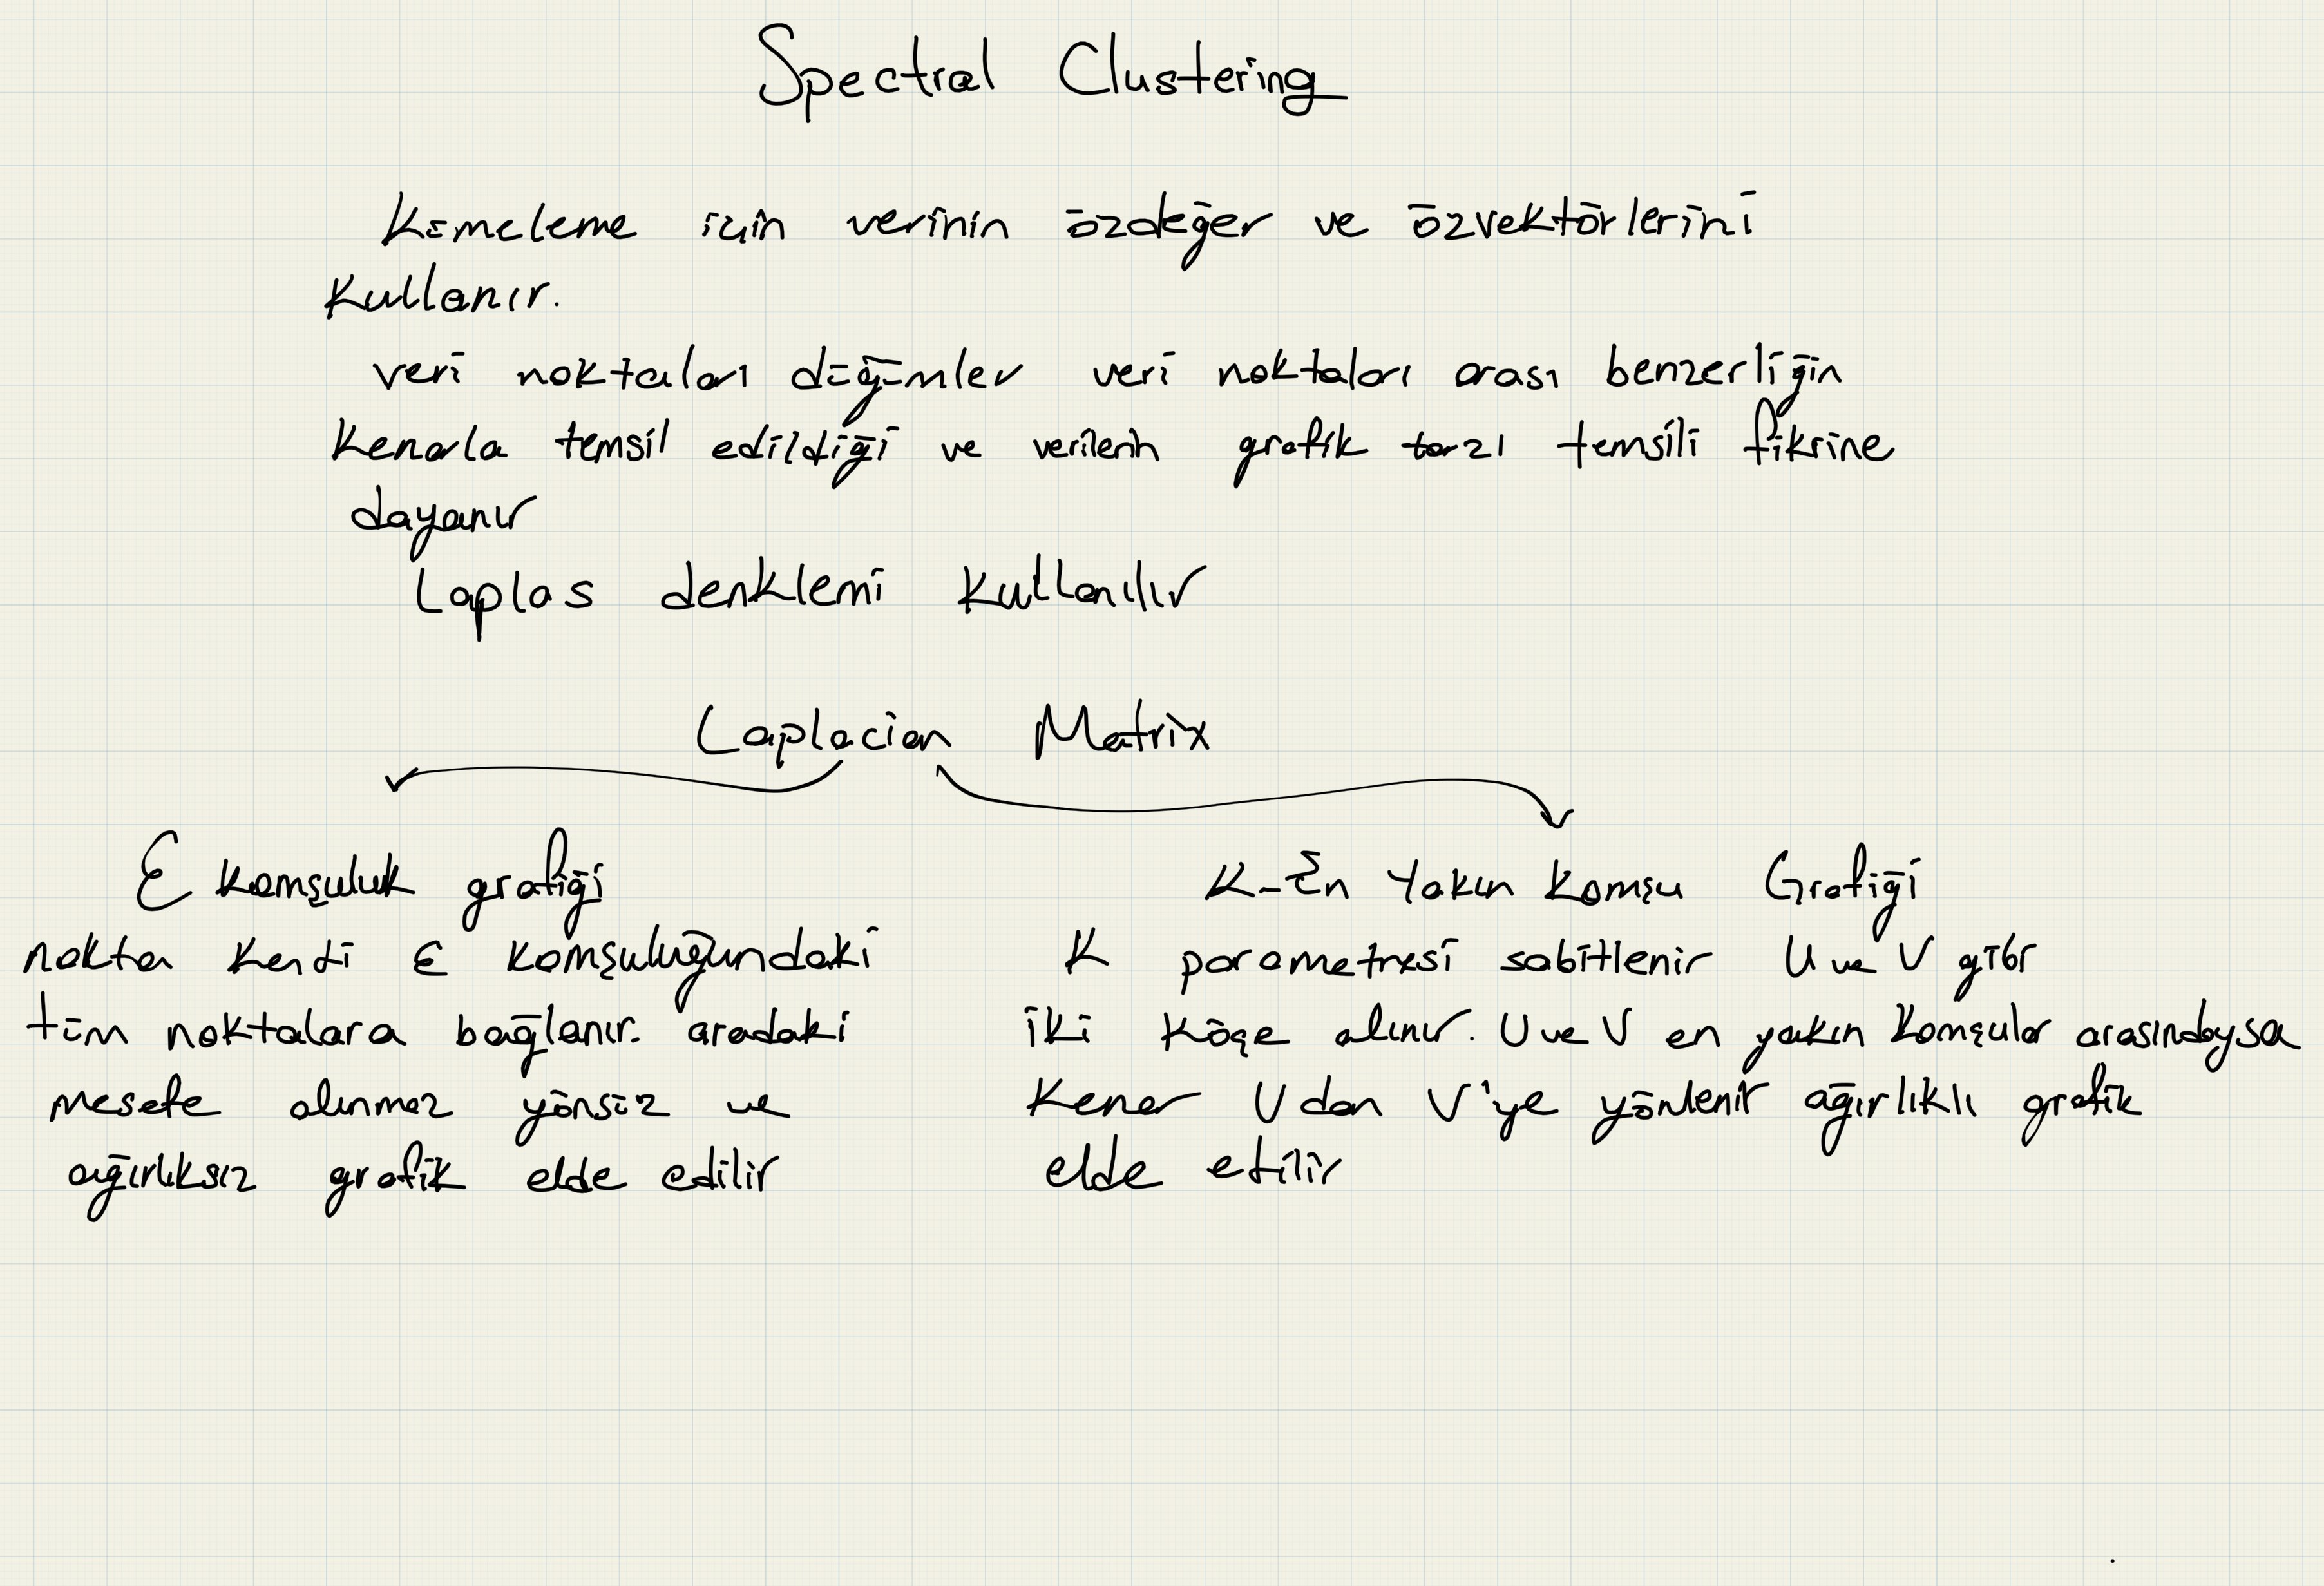 Spectral Clustering
Kümeleme için verinin özdeğer ve özvektörlerini
Kullanır.
veri noktaları düğümler veri noktaları arası benzerliğin
Kenarla temsil edildiği ve verilerin grafik tarzı temsili fikrine
dayanır
Laplas denklemi Kullanılır
Laplacian Matrix
Ɛ komşuluk grafiği
nokta kendi Ɛ komşuluğundaki
tüm noktalara bağlanır. aradaki
mesefe alınmaz yönsüz ve
ağırlıksız grafik elde edilir
K-En Yakın Komşu Grafiği
K parametresi sabitlenir U ve V gibi
iki Köşe alınır. U ve V en yakın komşular arasındaysa
Kenar U dan V'ye yönlenir ağırlıklı grafik
elde edilir